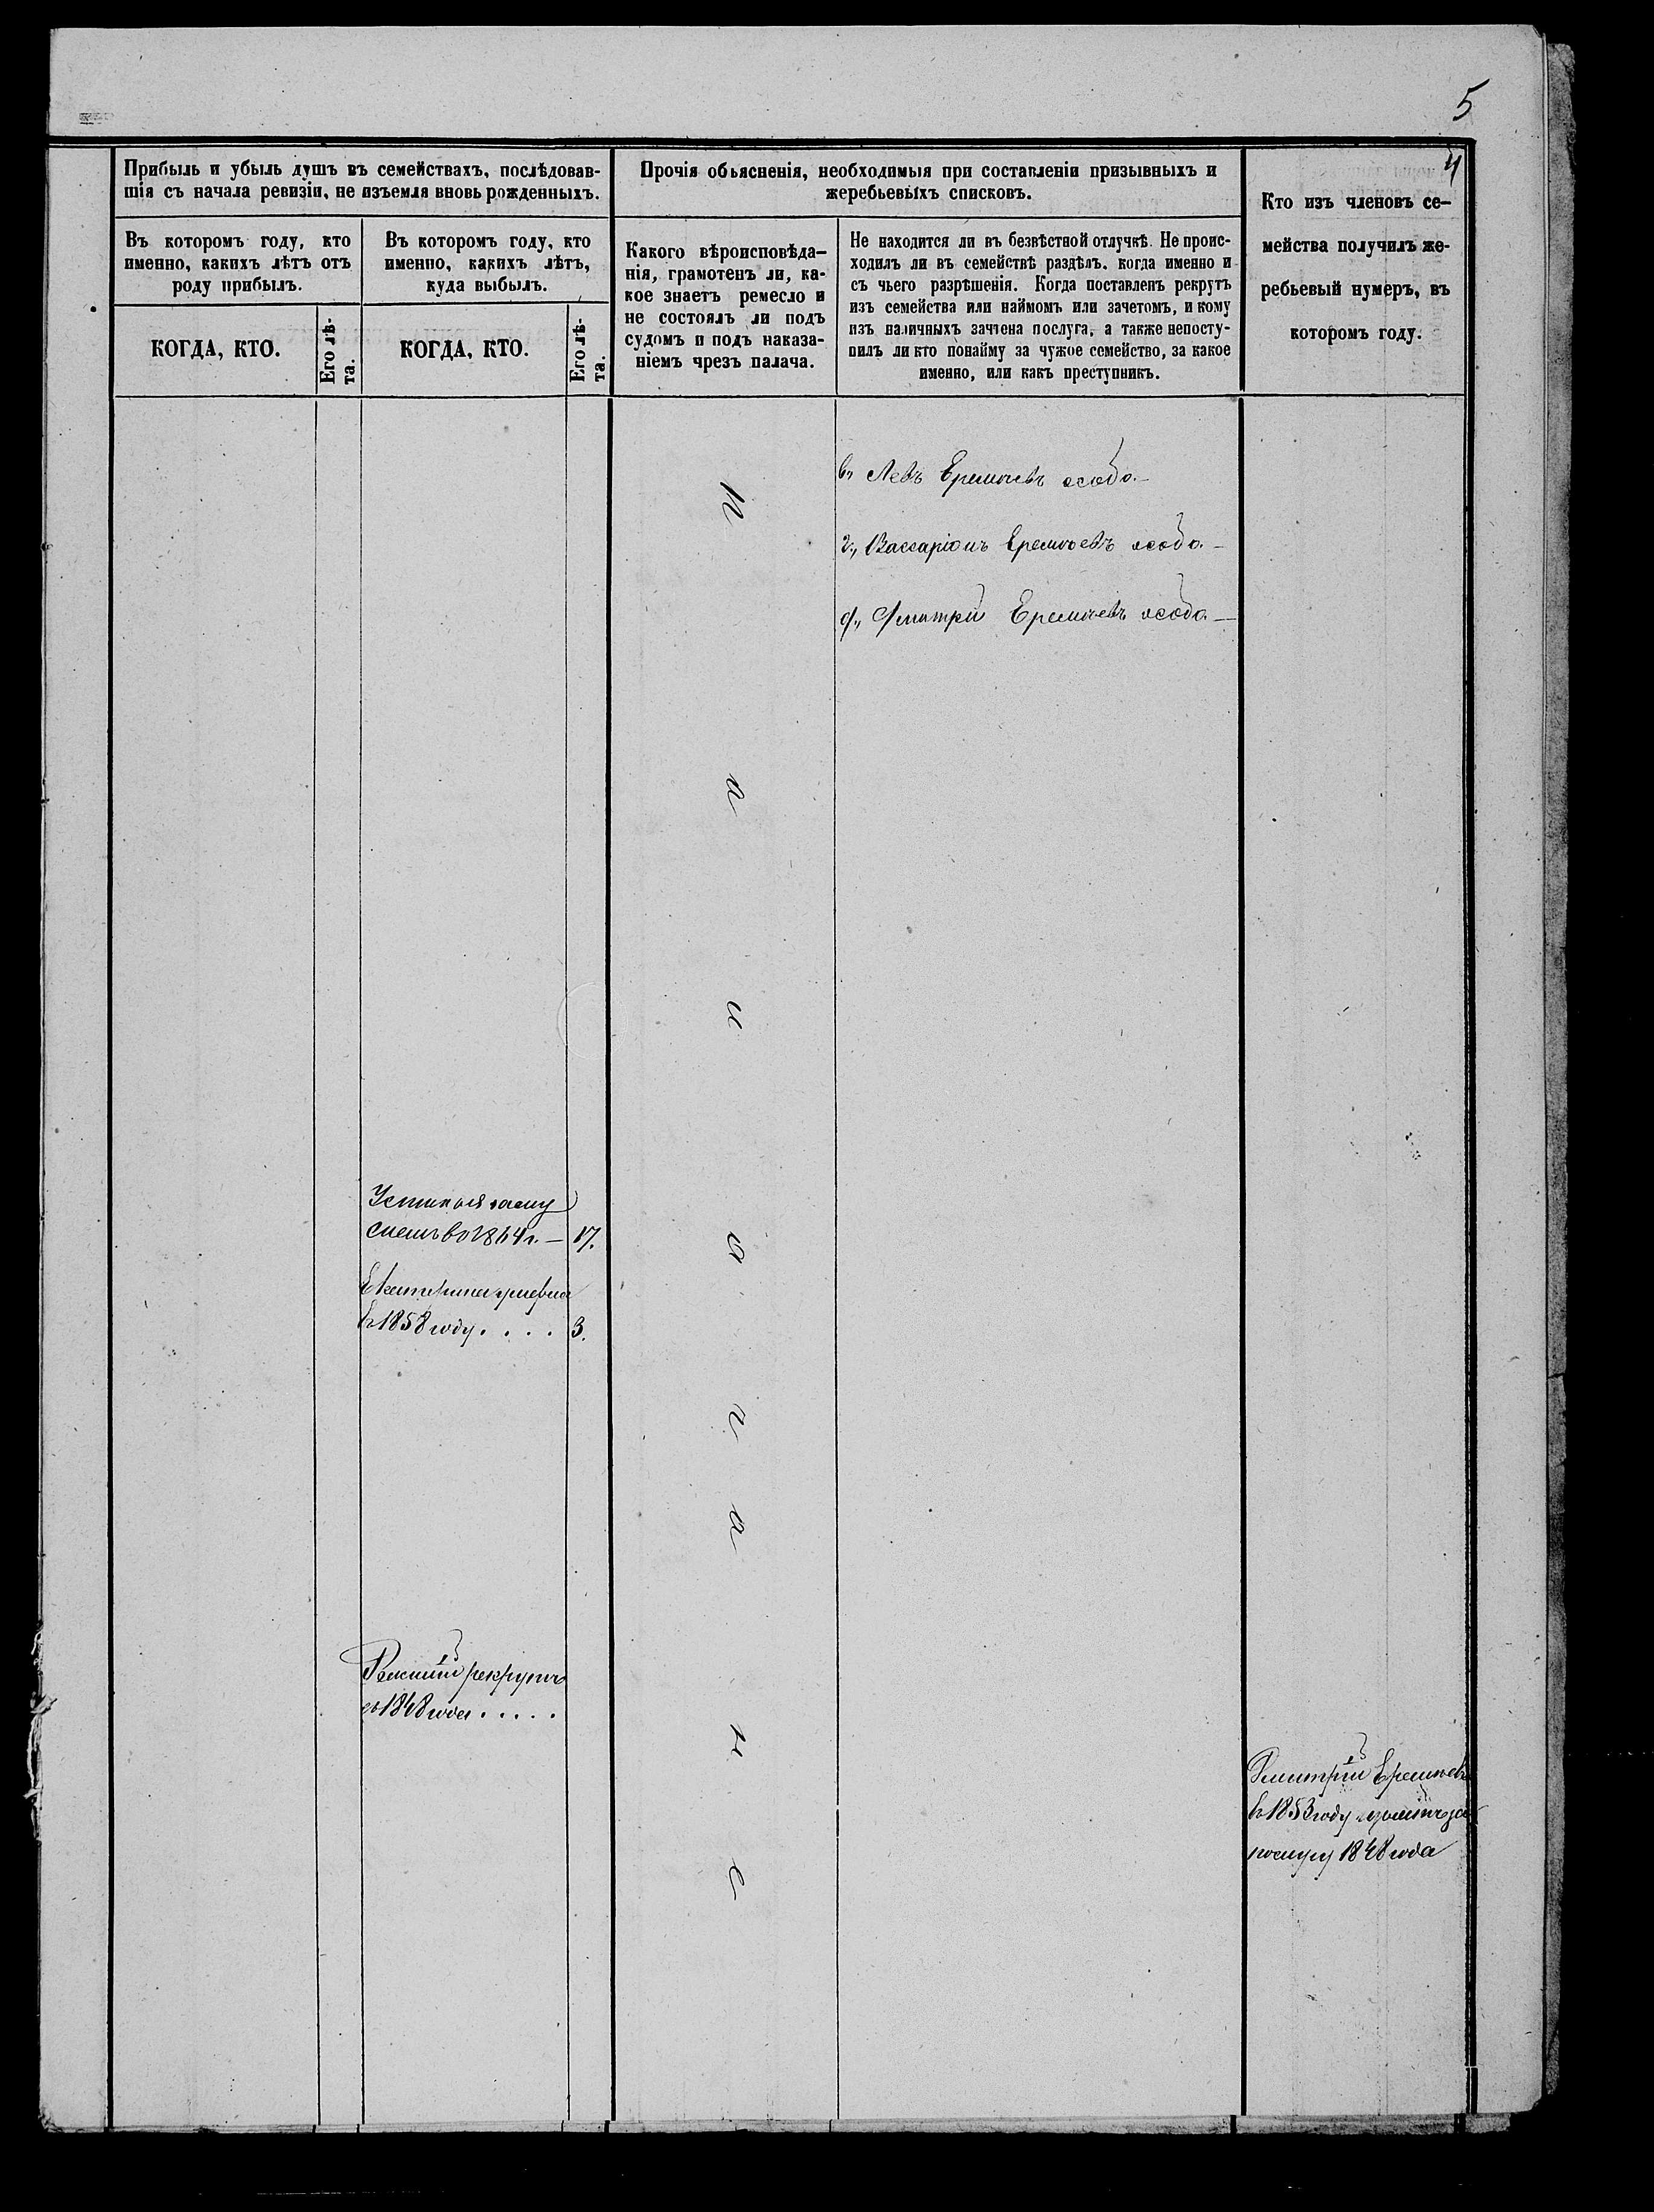 5
4
Прибыль и убыль душъ въ семействахъ, послѣдовав-
шія съ начала ревизіи, не изъемля вновь рожденныхъ.
Въ которомъ году, кто
именно, какихъ лѣтъ отъ
роду прибылъ.
КОГДА, КТО.
Его лѣ-
та.
Въ которомъ году, кто
именно, какихъ лѣтъ,
куда выбылъ.
КОГДА, КТО.
Его лѣ-
та.
Прочія обьясненія, необходимыя при составленіи призывныхъ и
жеребьевыхъ списковъ.
Какого вѣроисповѣда-
нія, грамотенъ ли, ка-
кое знаетъ ремесло и
не состоялъ ли подъ
судомъ и подъ наказа-
ніемъ чрезъ палача.
Не находится ли въ безвѣстной отлучкѣ. Не проис-
ходилъ ли въ семействѣ раздѣлъ, когда именно и
съ чьего разрѣшенія. Когда поставленъ рекрутъ
изъ семейства или наймомъ или зачетомъ, и кому
изъ наличныхъ зачтена послуга, а также непосту-
пилъ ли кто понайму за чужое семейство, за какое
именно, или какъ преступникъ.
Кто изъ членовъ се-
мейства получилъ же-
ребьевый нумеръ, въ
которомъ году.
в., Левъ Еремѣевъ особо.—
г., Вассаріонъ Еремѣевъ особо.—
д., Дмитрій Еремѣевъ особо—
1864 г. — 17.
Екатерина умерла
въ 1858 году . . . . 3.
рекрутъ
съ 1848 года . . . . .
Дмитрій Еремѣевъ
въ 1853 году за
послугу 1848 года